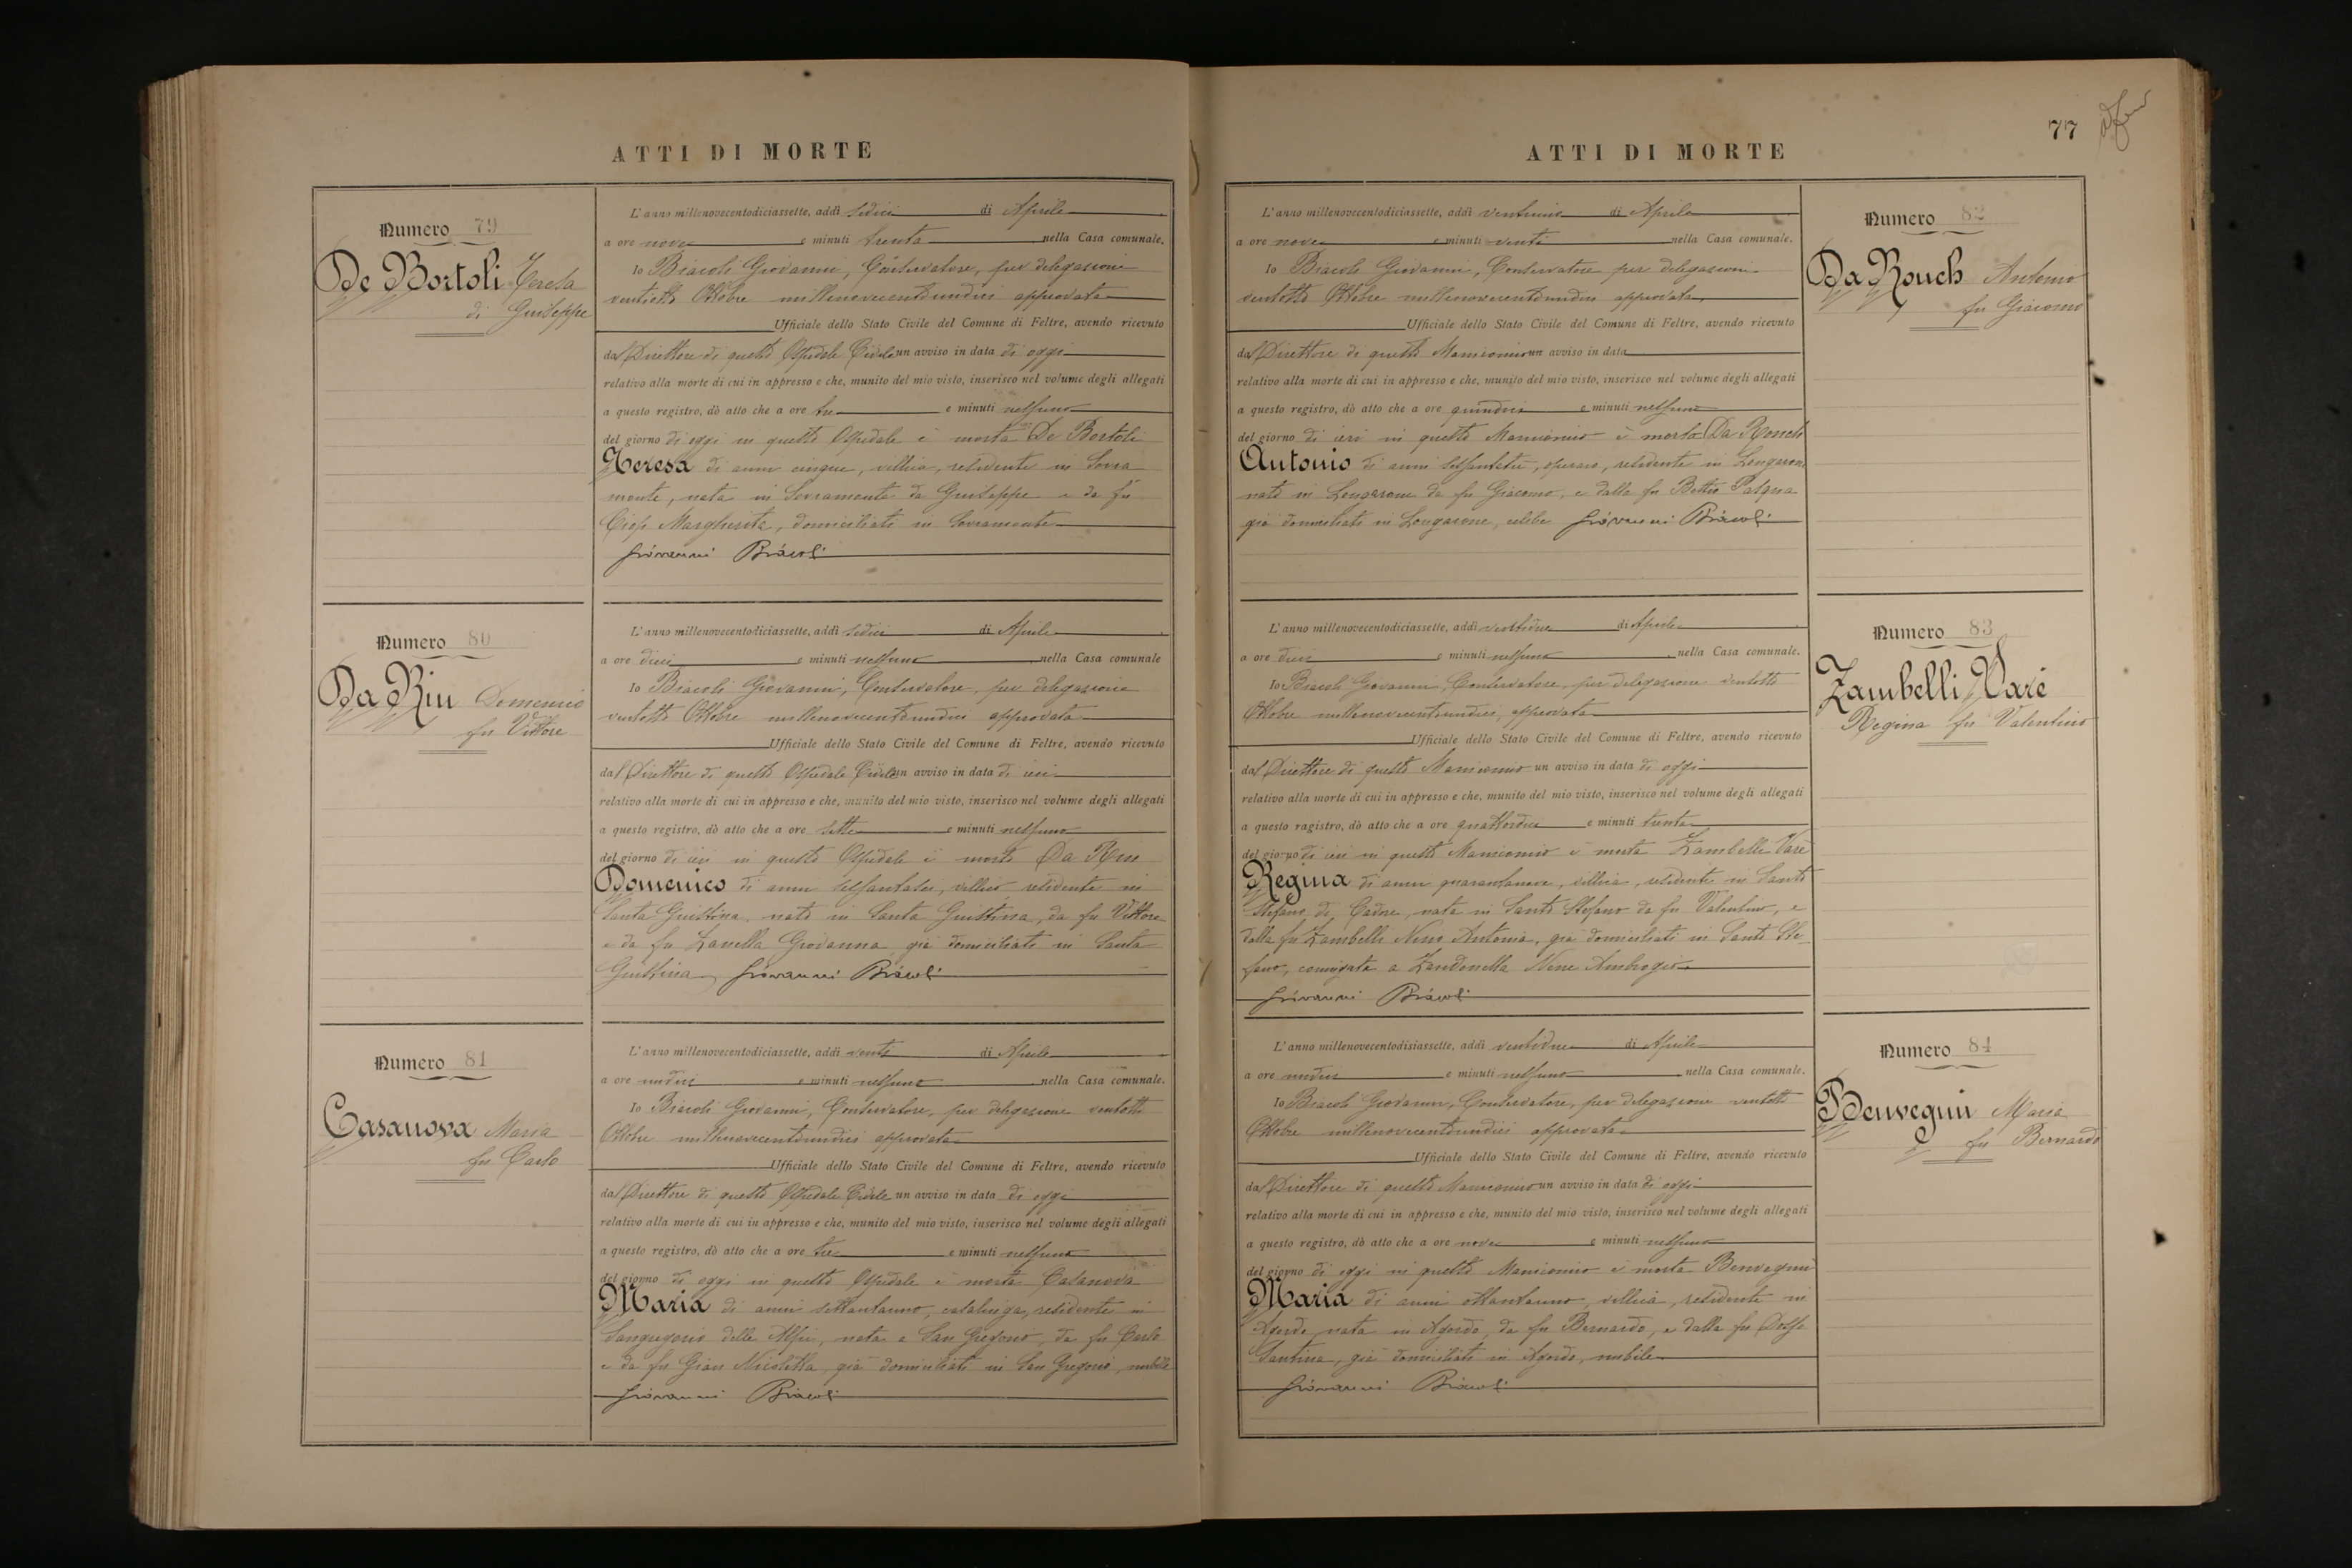 ATTI DI MORTE
Numero 79
De Bortoli Teresa
di Giuseppe
L'anno millenovecentodiciassette, addì sedici di Aprile
a ore nove e minuti trenta nella Casa comunale.
Io Biacoli Giovanni, Conservatore, per delegazione
ventotto Ottobre millenovecentoundici approvata
Ufficiale dello Stato Civile del Comune di Feltre, avendo ricevuto
dal Direttore di questo Ospedale Civile un avviso in data di oggi
relativo alla morte di cui in appresso e che, munito del mio visto, inserisco nel volume degli allegati
a questo registro, dò atto che a ore tre e minuti nessuno
del giorno di oggi in questo Ospedale è morta De Bortoli
Teresa di anni cinque, villica, residente in Sovra
monte, nata in Sovramonte da Giuseppe e da fu
Margherita, domiciliati in Sovramonte
Giovanni Biacoli
Numero 80
Da Rin Domenico
fu Vittore
L'anno millenovecentodiciassette, addì sedici di Aprile
a ore dieci e minuti nessuno nella Casa comunale
Io Biacoli Giovanni, Conservatore, per delegazione
ventotto Ottobre millenovecentoundici approvata
Ufficiale dello Stato Civile del Comune di Feltre, avendo ricevuto
dal Direttore di questo Ospedale Civile un avviso in data di ieri
relativo alla morte di cui in appresso e che, munito del mio visto, inserisco nel volume degli allegati
a questo registro, dò atto che a ore sette e minuti nessuno
del giorno di ieri in questo Ospedale è morto Da Rin
Domenico di anni sessantasei, villico residente in
Santa Giustina, nato in Santa Giustina, da fu Vittore
e da fu Zanella Giovanna già domiciliati in Santa
Giustina Giovanni Biacoli
Numero 81
Casanova Maria
fu Carlo
L'anno millenovecentodiciassette, addì venti di Aprile
a ore undici e minuti nessuno nella Casa comunale.
Io Biacoli Giovanni, Conservatore, per delegazione ventotto
Ottobre millenovecentoundici approvata
Ufficiale dello Stato Civile del Comune di Feltre, avendo ricevuto
dal Direttore di questo Ospedale Civile un avviso in data di oggi
relativo alla morte di cui in appresso e che, munito del mio visto, inserisco nel volume degli allegati
a questo registro, dò atto che a ore tre e minuti nessuno
del giorno di oggi in questo Ospedale è morta Casanova
Maria di anni settantanno, casalinga, residente in
Sangregorio delle Alpi, nata a San Gregorio, da fu Carlo
e da fu Gian Nicoletta, già domiciliati in San Gregorio, nubile
Giovanni Biacoli
77
ATTI DI MORTE
Numero 82
Da Ronch Antonio
fu Giacomo
L'anno millenovecentodiciassette, addì ventuno di Aprile
a ore nove e minuti venti nella Casa comunale.
Io Biacoli Giovanni, Conservatore per delegazione
ventotto Ottobre millenovecentoundici approvata
Ufficiale dello Stato Civile del Comune di Feltre, avendo ricevuto
dal Direttore di questo Manicomio un avviso in data
relativo alla morte di cui in appresso e che, munito del mio visto, inserisco nel volume degli allegati
a questo registro, dò atto che a ore quindici e minuti nessuno
del giorno di ieri in questo Manicomio è morto Da Ronch
Antonio di anni sessantatre, operaio, residente in Longarone
nato in Longarone da fu Giacomo, e dalla fu Bettio Pasqua
già domiciliati in Longarone, celibe Giovanni Biacoli
Numero 83
Zambelli Varè
Regina fu Valentino
L'anno millenovecentodiciassette, addì ventidue di Aprile
a ore dieci e minuti nessuno nella Casa comunale.
Io Biacoli Giovanni, Conservatore, per delegazione ventotto
Ottobre millenovecentoundici, approvata
Ufficiale dello Stato Civile del Comune di Feltre, avendo ricevuto
dal Direttore di questo Manicomio un avviso in data di oggi
relativo alla morte di cui in appresso e che, munito del mio visto, inserisco nel volume degli allegati
a questo ragistro, dò atto che a ore quattordici e minuti trenta
del giorno di ieri in questo Manicomio è morta Zambelli Varè
Regina di anni quarantanove, villica, residente in Santo
Stefano di Cadore, nata in Santo Stefano da fu Valentino, e
dalla fu Zambelli Antonia, già domiciliati in Santo Ste
fano, coniugata a Zandonella Ambrogio
Giovanni Biacoli
Numero 84
Benvegnù Maria
fu Bernardo
L'anno millenovecentodisiassette, addì ventidue di Aprile
a ore undici e minuti nessuno nella Casa comunale.
Io Biacoli Giovanni, Conservatore, per delegazione ventotto
Ottobre millenovecentoundici approvata
Ufficiale dello Stato Civile del Comune di Feltre, avendo ricevuto
dal Direttore di questo Manicomio un avviso in data di oggi
relativo alla morte di cui in appresso e che, munito del mio visto, inserisco nel volume degli allegati
a questo registro, dò atto che a ore nove e minuti nessuno
del giorno di oggi in questo Manicomio è morta Benvegnù
Maria di anni ottantanno, villica, residente in
Agordo, nata in Agordo, da fu Bernardo, e dalla fu
Santina, già domiciliati in Agordo, nubile
Giovanni Biacoli